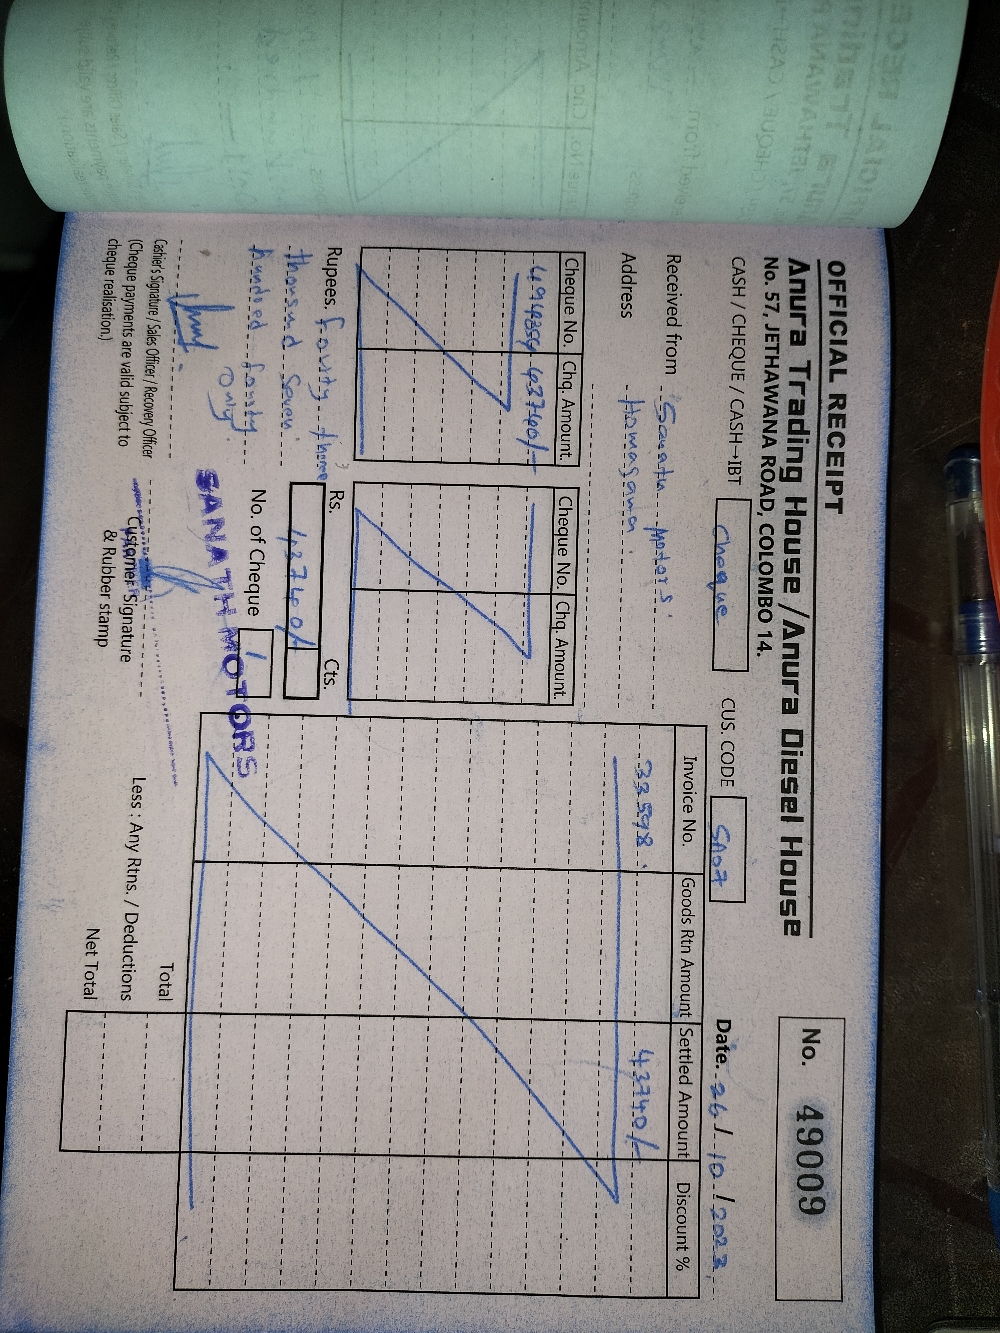 OFFICIAL RECEIPT
Anura Trading House / Anura Diesel House
No. 57, JETHAWANA ROAD, COLOMBO 14.
No. 49009
CASH / CHEQUE / CASH→IBT cheque CUS. CODE SA07 Date. 26 / 10 / 2023
Received from Sanath Motors.
Address Homagama.
Cheque No. Chq. Amount. Cheque No. Chq. Amount.
494359 43740/-
Invoice No. Goods Rtn Amount Settled Amount Discount %
33598. 43740/-
Rupees. fourty three Rs. 43740/- Cts.
thousand seven
hundred fourty No. of Cheque 1
only.
SANATH MOTORS
Cashier's Signature / Sales Officer / Recovery Officer
(Cheque payments are valid subject to
cheque realisation.)
Customer Signature
& Rubber stamp
Total
Less : Any Rtns. / Deductions
Net Total